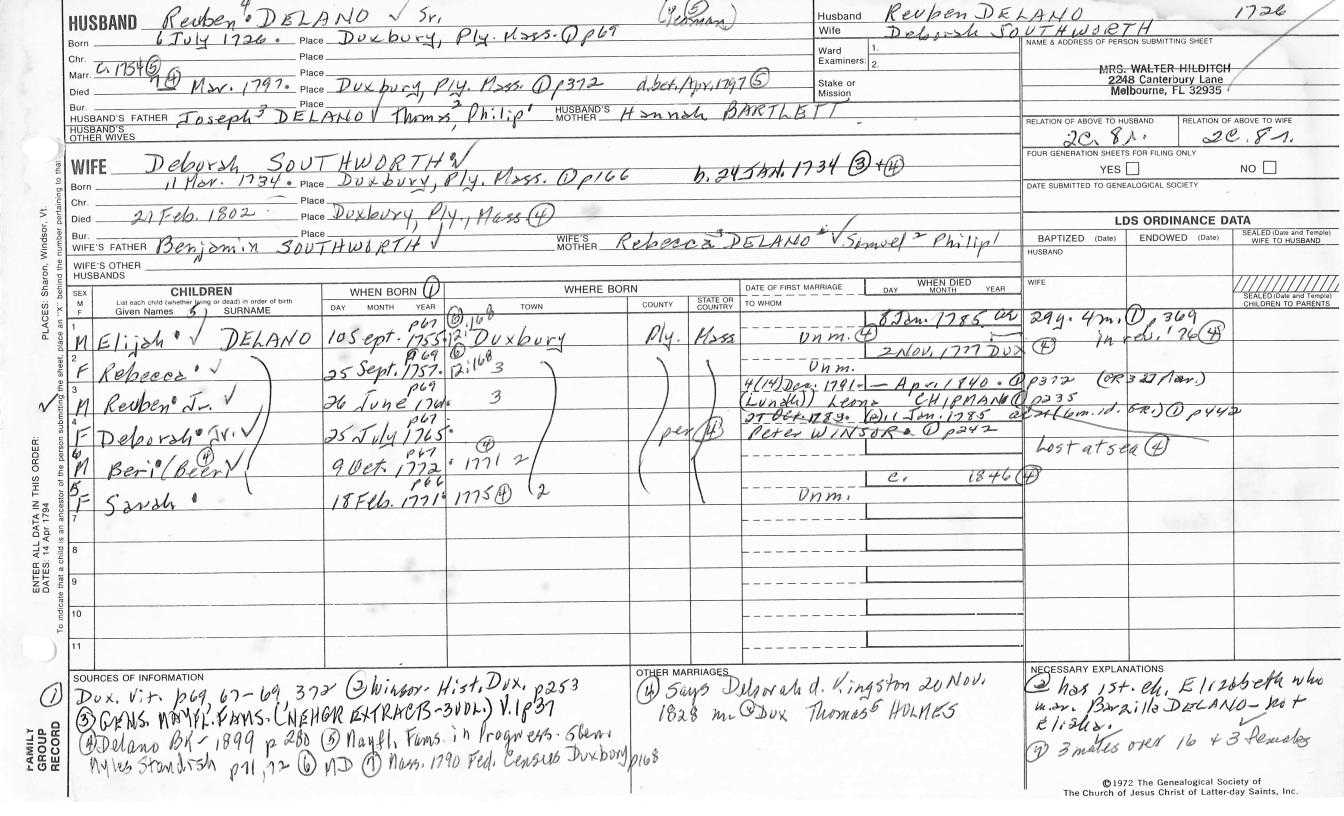 HUSBAND Reuben⁴ DELANO √ Sr. (⑤ Yeoman)
Born 6 July 1726. Place Duxbury, Ply. Mass. ① p69
Chr. Place
Marr. c. 1754 ⑤ Place
Died ④ Mar. 1797. Place Duxbury, Ply. Mass. ① p372 d. bet. Apr. 1797 ⑤
Bur. Place
HUSBAND'S FATHER Joseph³ DELANO √ Thomas² Philip¹ HUSBAND'S MOTHER Hannah BARTLETT
HUSBAND'S OTHER WIVES
Husband Reuben DELANO 1726
Wife Deborah SOUTHWORTH
Ward Examiners: 1. 2.
Stake or Mission
NAME & ADDRESS OF PERSON SUBMITTING SHEET
MRS. WALTER HILDITCH
2248 Canterbury Lane
Melbourne, FL 32935
RELATION OF ABOVE TO HUSBAND RELATION OF ABOVE TO WIFE
2C. 8r. 2C. 8r.
FOUR GENERATION SHEETS FOR FILING ONLY
YES NO
DATE SUBMITTED TO GENEALOGICAL SOCIETY
WIFE Deborah SOUTHWORTH √
Born 11 Mar. 1734. Place Duxbury, Ply. Mass. ① p166 b. 24 Jan. 1734 ③ + ④
Chr. Place
Died 21 Feb. 1802 Place Duxbury, Ply., Mass ④
Bur. Place
WIFE'S FATHER Benjamin SOUTHWORTH √ WIFE'S MOTHER Rebecca³ DELANO √ Samuel² Philip¹
WIFE'S OTHER HUSBANDS
LDS ORDINANCE DATA
BAPTIZED (Date) ENDOWED (Date) SEALED (Date and Temple) WIFE TO HUSBAND
HUSBAND
WIFE
SEALED (Date and Temple) CHILDREN TO PARENTS
SEX M F CHILDREN List each child (whether living or dead) in order of birth Given Names SURNAME
WHEN BORN ① DAY MONTH YEAR
WHERE BORN TOWN COUNTY STATE OR COUNTRY
DATE OF FIRST MARRIAGE TO WHOM
WHEN DIED DAY MONTH YEAR
1 M Elijah √ DELANO 10 Sept. 1755 p67 ⑥ 12:168 Duxbury Ply. Mass Unm. ④ 8 Jan. 1785 29y. 4m. ① p369
in rev. '76 ④
2 F Rebecca √ 25 Sept. 1757. p69 ⑥ 12:168 3 Unm. 2 Nov. 1777 Dux ④
3 M Reuben Jr. √ 26 June p69 3 4 (14) Dec. 1791 — Apr. 1840. ① p372 (OR 327 Mar.)
(Lunda) Leona CHIPMAN ① p235
4 F Deborah Jr. √ 25 July 1765. p67 per ④ (2) 11 Jan. 1785 ① p442
Peter WINSOR. ① p242
6 M Beri (Beer ④ √ 9 Oct. 1772. p67 1771 ④ 2 Lost at sea ④
5 F Sarah 18 Feb. 1771 p66 1775 ④ 2 Unm. c. 1846 ④
7
8
9
10
11
SOURCES OF INFORMATION
① Dux. Vit. p69, 67-69, 372 ② Winsor- Hist. Dux. p253
③ GENS. MAYFL. FAMS. (NEHGR EXTRACTS-3VOL.) V.1 p37
④ Delano BK - 1899 p 280 ⑤ Mayfl. Fams. in Progress-
Myles Standish p71, 72 ⑥ MD ⑦ Mass. 1790 Fed. Census Duxbury p168
OTHER MARRIAGES
④ Says Deborah d. Kingston 20 Nov.
1828 m. ② Dux Thomas⁵ HOLMES
NECESSARY EXPLANATIONS
② has 1st. ch. Elizabeth who
mar. Barzilla DELANO - not
Elisha.
⑦ 3 males over 16 & 3 females
©1972 The Genealogical Society of
The Church of Jesus Christ of Latter-day Saints, Inc.
FAMILY GROUP RECORD
ENTER ALL DATA IN THIS ORDER:
DATES: 14 Apr 1794
PLACES: Sharon, Windsor, Vt.
To indicate that a child is an ancestor of the person submitting the sheet, place an "X" behind the number pertaining to that